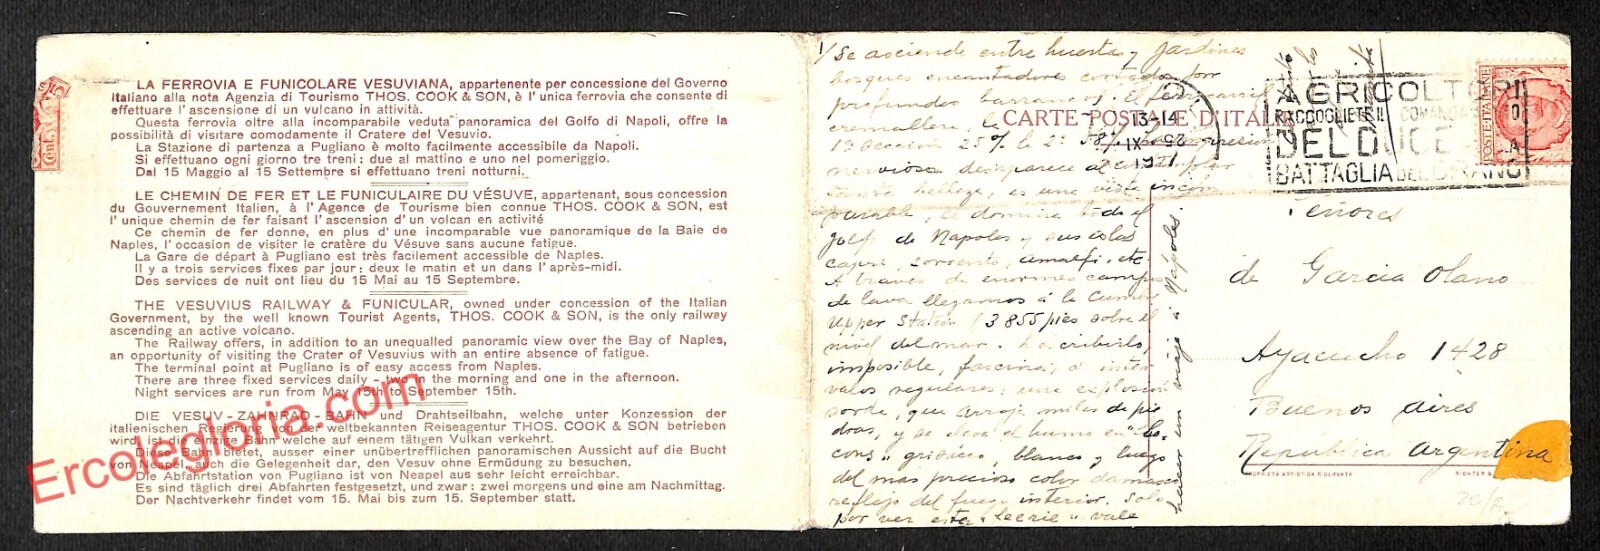 LA FERROVIA E FUNICOLARE VESUVIANA, appartenente per concessione del Governo
Italiano alla nota Agenzia di Tourismo THOS. COOK & SON, è l'unica ferrovia che consente di
effettuare l'ascensione di un vulcano in attività.
Questa ferrovia oltre alla incomparabile veduta panoramica del Golfo di Napoli, offre la
possibilità di visitare comodamente il Cratere del Vesuvio.
La Stazione di partenza a Pugliano è molto facilmente accessibile da Napoli.
Si effettuano ogni giorno tre treni: due al mattino e uno nel pomeriggio.
Dal 15 Maggio al 15 Settembre si effettuano treni notturni.
LE CHEMIN DE FER ET LE FUNICULAIRE DU VÉSUVE, appartenant, sous concession
du Gouvernement Italien, à l'Agence de Tourisme bien connue THOS. COOK & SON, est
l'unique chemin de fer faisant l'ascension d'un volcan en activité
Ce chemin de fer donne, en plus d'une incomparable vue panoramique de la Baie de
Naples, l'occasion de visiter le cratère du Vésuve sans aucune fatigue.
La Gare de départ à Pugliano est très facilement accessible de Naples.
Il y a trois services fixes par jour: deux le matin et un dans l'après-midi.
Des services de nuit ont lieu du 15 Mai au 15 Septembre.
THE VESUVIUS RAILWAY & FUNICULAR, owned under concession of the Italian
Government, by the well known Tourist Agents, THOS. COOK & SON, is the only railway
ascending an active volcano.
The Railway offers, in addition to an unequalled panoramic view over the Bay of Naples,
an opportunity of visiting the Crater of Vesuvius with an entire absence of fatigue.
The terminal point at Pugliano is of easy access from Naples.
There are three fixed services daily - two in the morning and one in the afternoon.
Night services are run from May 15th to September 15th.
DIE VESUV-ZAHNRAD-BAHN und Drahtseilbahn, welche unter Konzession der
italienischen Regierung von der weltbekannten Reiseagentur THOS. COOK & SON betrieben
wird ist die einzige Bahn welche auf einem tätigen Vulkan verkehrt.
Diese Bahn bietet, ausser einer unübertrefflichen panoramischen Aussicht auf die Bucht
von Neapel, auch die Gelegenheit dar, den Vesuv ohne Ermüdung zu besuchen.
Die Abfahrtstation von Pugliano ist von Neapel aus sehr leicht erreichbar.
Es sind täglich drei Abfahrten festgesetzt, und zwar: zwei morgens und eine am Nachmittag.
Der Nachtverkehr findet vom 15. Mai bis zum 15. September statt.
Ercolegloria.com
1/ Se asciende entre huertas y jardines
bosques encantadores cortados por
profundos barrancos. El ferrocarril
cremallera, la
1ª sección 25% la 2ª 58%
nerviosa desaparece al contemplar
tanta belleza, es una vista incom
parable, se domina todo el
golfo de Napoles y sus islas
Capri, Sorrento, Amalfi, etc.
A través de enormes campos
de lava llegamos á la Cumbre
Upper Station (3855 pies sobre el
nivel del mar. Describirlo,
imposible, fascina; á inter
valos regulares, una explosión
sorda, que arroja miles de pie
dras, y se eleva el humo en "bo-
cons" grisáceo, blanco y luego
del mas precioso color damasco
reflejo del fuego interior. Solo
por ver esta "feerie" vale
hacer un viaje á Nápoles
CARTE POSTALE D'ITALIE
13-14
IX
1927
AGRICOLTORI
RACCOGLIETE IL COMANDAMENTO
DEL DUCE
BATTAGLIA DEL GRANO
POSTE·ITALIANE
Cent.
Señores
de Garcia Olano
Ayacucho 1428
Buenos Aires
Republica Argentina
PROPRIETÀ ARTISTICA RISERVATA
RICHTER &